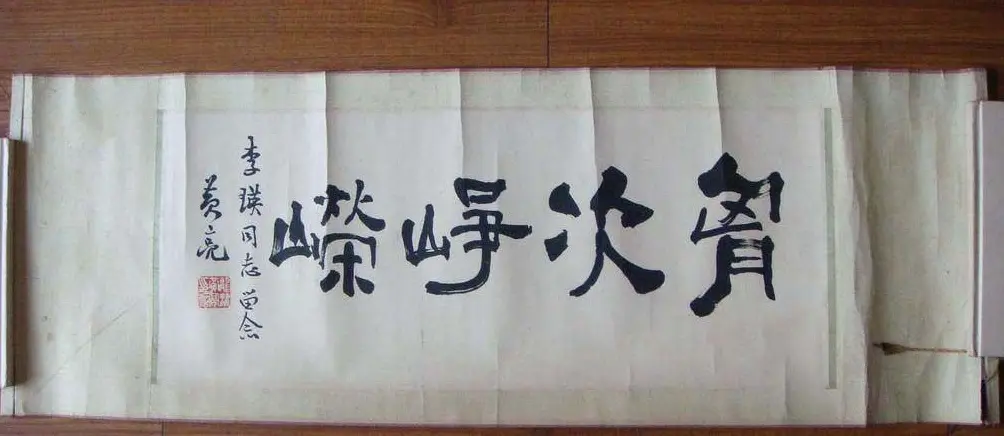 胷次峥嵘
李瑛同志留念
黄亮